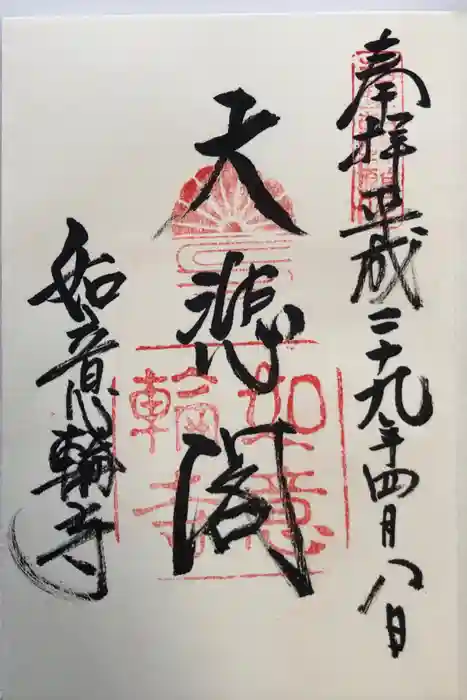 奉拝 平成二十九年四月八日
天悲閣
如意輪寺
如意輪寺